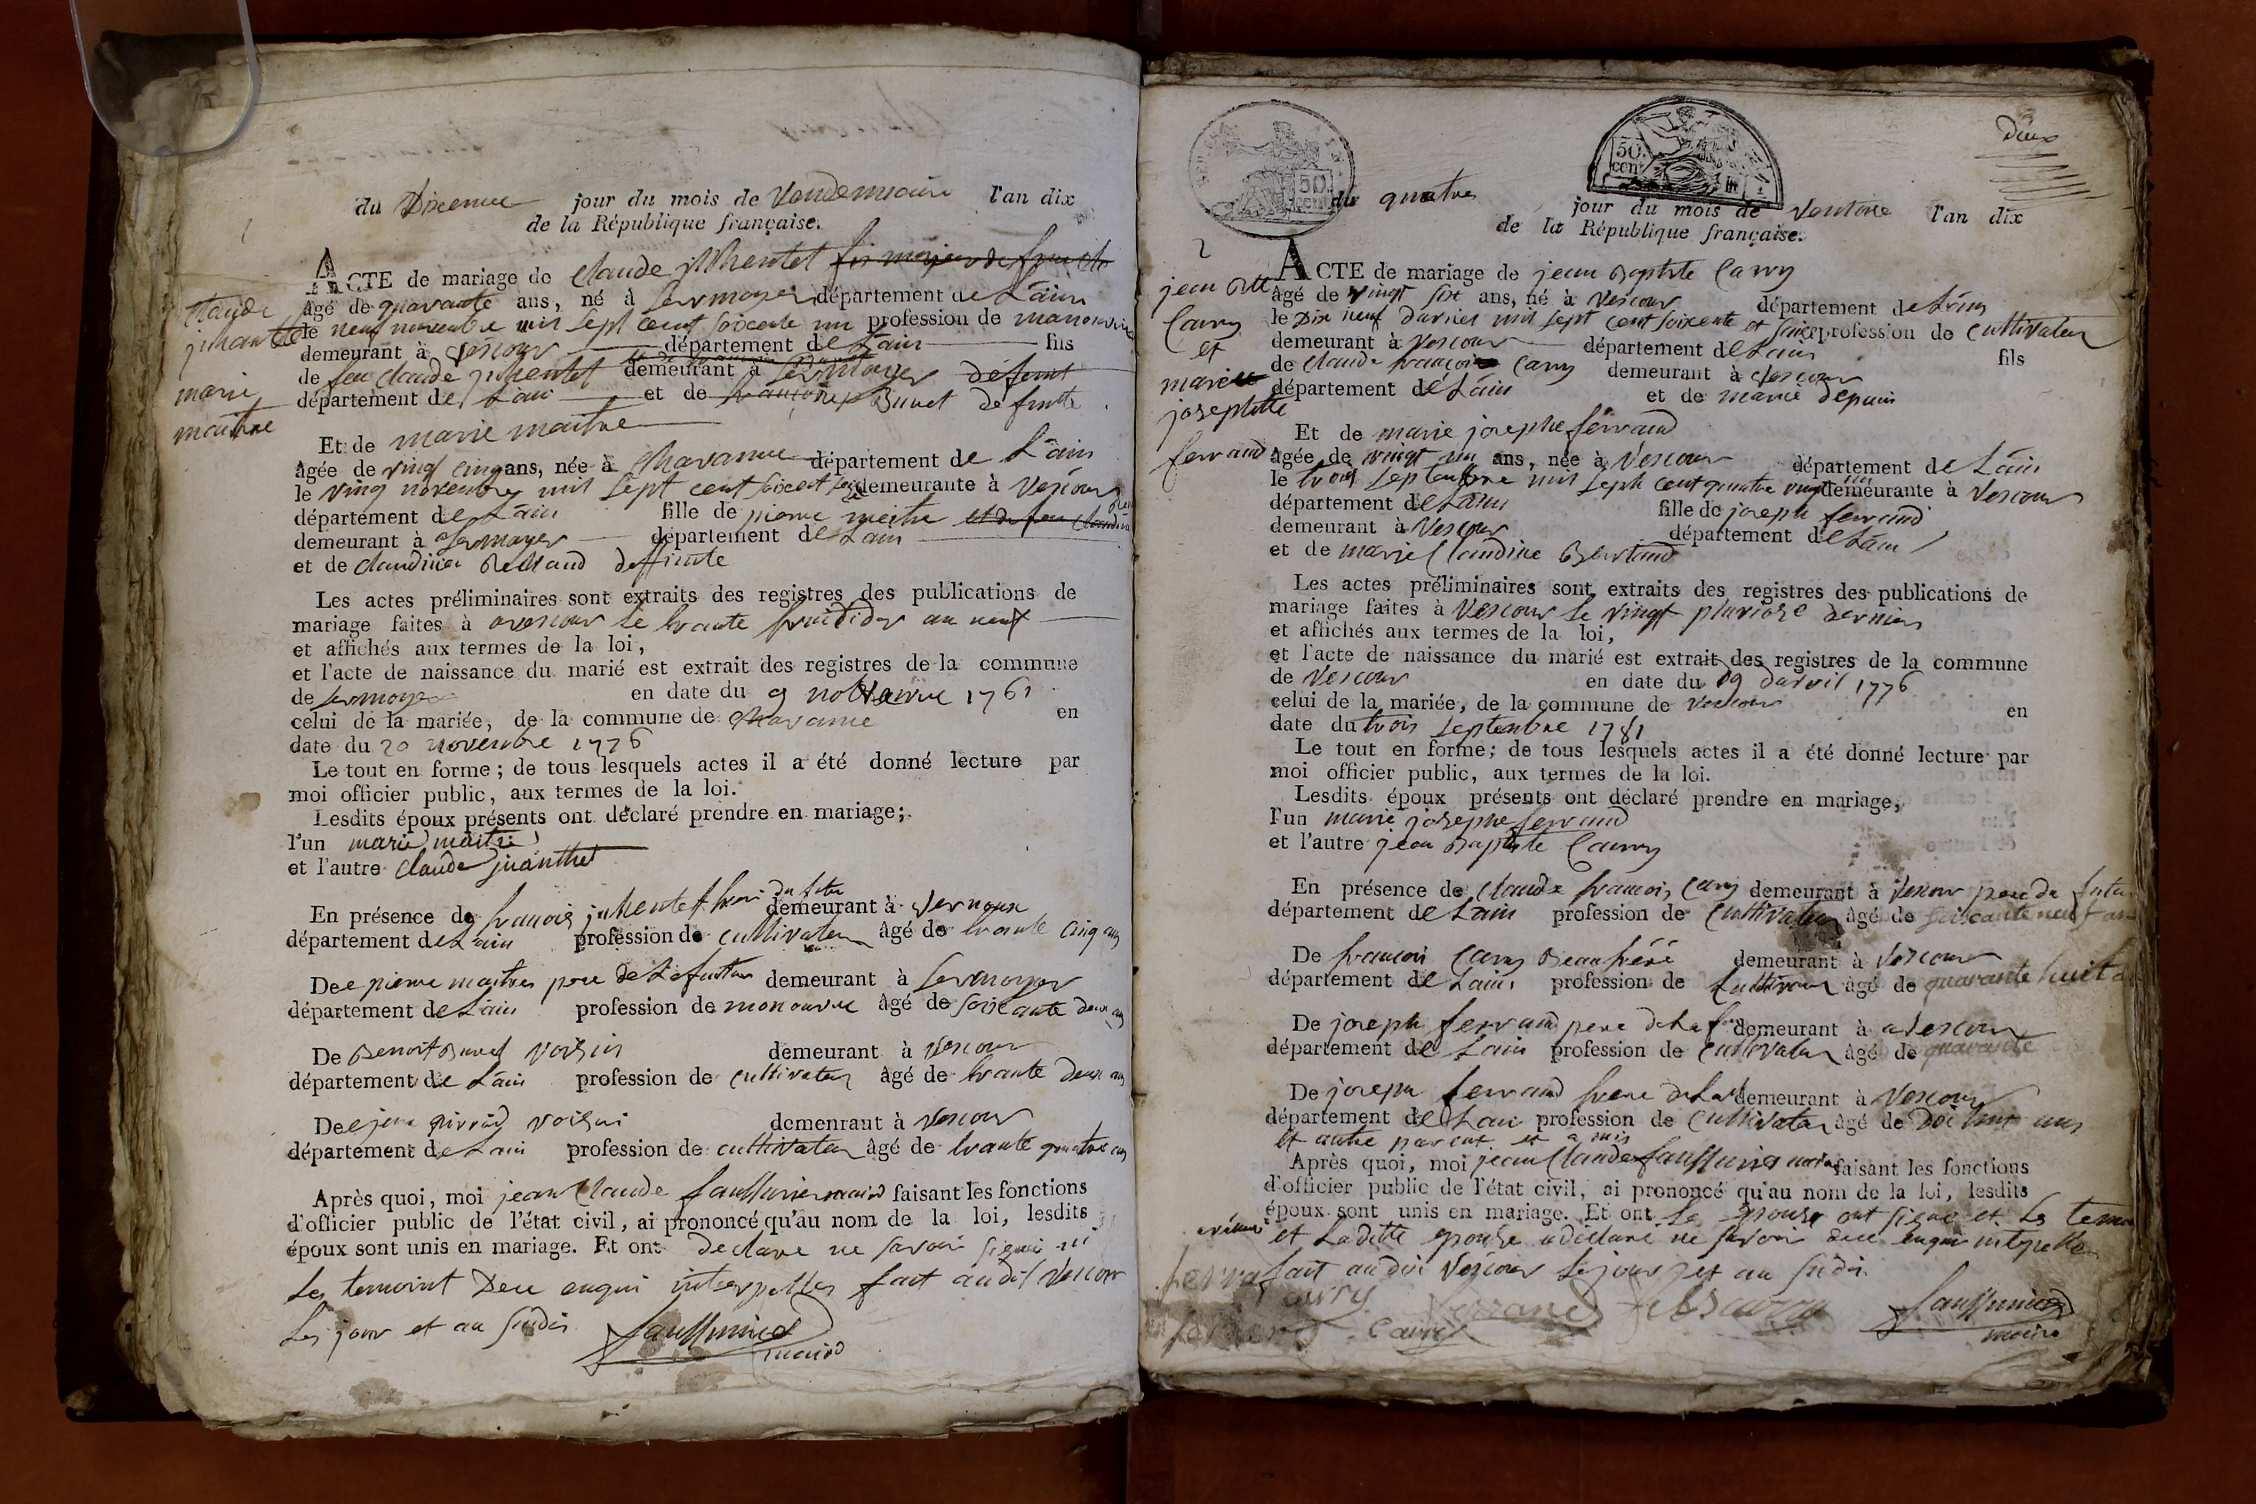 du Dixieme jour du mois de Vendemiaire l'an dix
de la République française.
1
ACTE de mariage de Claude juhentet
âgé de quarante ans, né à Sermoyer département de Lain
le neuf novembre mil sept cent soixente un profession de manouvrie
demeurant à Vescour département de Lain fils
de feu Claude juhentet demeurant à Sermoyer défunt
département de Lain et de françoise Buvet defunte
Claude
juhantet
marie
maitre
Et de marie maitre
âgée de vingt cinq ans, née à Chavanne département de Lain
le ving novembre mil sept cent soixent seize demeurante à Vescour
département de Lain fille de pierre meitre et de feu Claudine
demeurant à Sermoyer département de Lain
et de Claudine Relland deffunte
Les actes préliminaires sont extraits des registres des publications de
mariage faites à avescour le trante fructidor an neuf
et affichés aux termes de la loi,
et l'acte de naissance du marié est extrait des registres de la commune
de Sermoyer en date du 9 novembre 1761
celui de la mariée, de la commune de Chavanne en
date du 20 novembre 1776
Le tout en forme; de tous lesquels actes il a été donné lecture par
moi officier public, aux termes de la loi.
Lesdits époux présents ont déclaré prendre en mariage;
l'un marie maitre
et l'autre Claude juanthet
En présence de françois juhentet frere du futur demeurant à Vernoux
département de Lain profession de cultivateur âgé de trante cinq ans
De pierre maitre pere de la future demeurant à Sermoyer
département de Lain profession de monouvrie âgé de soixante deux ans
De Benoit Buvet voisin demeurant à Vescour
département de Lain profession de cultivateur âgé de trante deux ans
De jean pirrad voisin demeurant à Vescour
département de Lain profession de cultivateur âgé de trante quatre ans
Après quoi, moi jean Claude Saussunier maire faisant les fonctions
d'officier public de l'état civil, ai prononcé qu'au nom de la loi, lesdits
époux sont unis en mariage. Et ont declaré ne savoir signer ni
les temoint Dece enquis interpelles fait audit Vescour
Les jour et an susdis
Saussunier
maire
50 cent
50. cent
Deux
du quatre jour du mois de Ventose l'an dix
de la République française.
2
ACTE de mariage de jean Baptiste Carry
âgé de vingt six ans, né à Vescour département de Lain
le Dix neuf Davril mil sept cent soixente et seize profession de Cultivateur
demeurant à Vescour département de Lain fils
de Claude françois Carry demeurant à Vescour
département de Lain et de marie depuin
jean Btte
Carry
et
marie
josephtte
ferrand
Et de marie josephe ferrand
âgée de vingt un ans, née à Vescour département de Lain
le trois Septembre mil Sept cent quatre vingt un demeurante à Vescour
département de Lain fille de joseph ferrand
demeurant à Vescour département de Lain
et de marie Claudine Bertand
Les actes préliminaires sont extraits des registres des publications de
mariage faites à Vescour le vingt pluviose dernier
et affichés aux termes de la loi,
et l'acte de naissance du marié est extrait des registres de la commune
de Vescour en date du 19 davril 1776
celui de la mariée, de la commune de Vescour en
date du trois Septembre 1781
Le tout en forme; de tous lesquels actes il a été donné lecture par
moi officier public, aux termes de la loi.
Lesdits époux présents ont déclaré prendre en mariage,
l'un marie josephe ferrand
et l'autre jean Baptiste Carry
En présence de Claude francois Cary demeurant à Vescour pere du futur
département de Lain profession de Cultivateur âgé de soixante neuf ans
De francois Cary Beaufrère demeurant à Vescour
département de Lain profession de Cultivateur âgé de quarante huit a
De joseph ferrand pere de la fu demeurant à aVescour
département de Lain profession de Cultivateur âgé de quarante
De joseph ferrand frere de la demeurant à Vescour
département de Lain profession de Cultivateur âgé de Dix huit ans
et autre parent et amis
Après quoi, moi jean Claude Saussunier maire faisant les fonctions
d'officier public de l'état civil, ai prononcé qu'au nom de la loi, lesdits
époux sont unis en mariage. Et ont Le Epouse ont signé et Les temoi
et Laditte epouse adeclaré ne Savoir dece enquis interpelle
fait audit Vescour Le jour et an susdis
carry
ferrand
Saussunier
Carry
maire